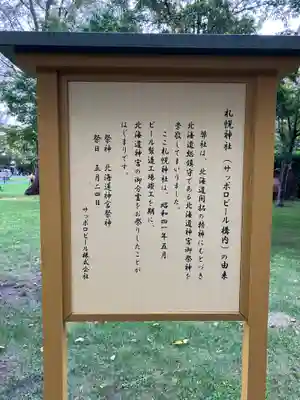 札幌神社（サッポロビール構内）の由来
弊社は、北海道開拓の精神にもとづき
北海道総鎮守である北海道神宮御祭神を
奉敬してまいりました。
ここ札幌神社は、昭和四一年五月
ビール製造工場竣工を期に、
北海道神宮の御分霊をお祭りしたことが
はじまりです。
祭神　北海道神宮祭神
祭日　五月二四日
サッポロビール株式会社